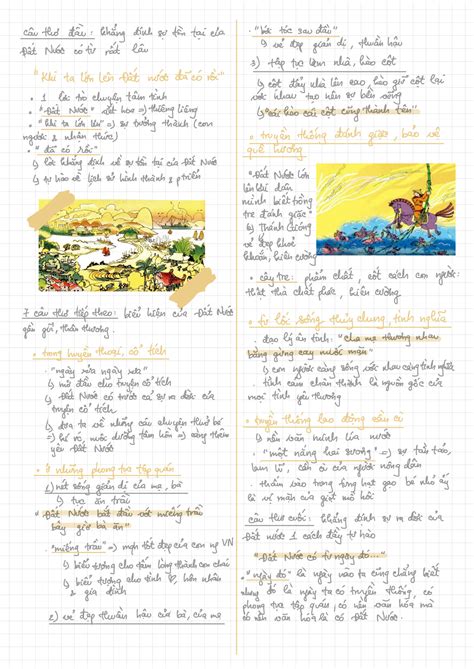 câu thơ đầu: khẳng định sự tồn tại của
Đất Nước có từ rất lâu
"Khi ta lớn lên Đất nước đã có rồi"
• 1 lời trò chuyện tâm tình
• "Đất Nước" viết hoa => thiêng liêng
• "khi ta lớn lên" => sự trưởng thành (con
người & nhận thức)
• "đã có rồi"
↳ lời khẳng định về sự tồn tại của Đất Nước
↳ tự hào về lịch sử hình thành & ptriển
7 câu thơ tiếp theo: biểu hiện của Đất Nước
gần gũi, thân thương.
• trong huyền thoại, cổ tích
• "ngày xửa ngày xưa"
↳ mở đầu cho truyện cổ tích
↳ Đất Nước có trước cả sự ra đời của
truyện cổ tích
↳ đưa ta về những câu chuyện thuở bé
=> hư vô, nuôi dưỡng tâm hồn => càng thêm
yêu Đất Nước
• ở những phong tục tập quán
1) nét sống giản dị của mẹ, bà
↳ tục ăn trầu
"Đất Nước bắt đầu với miếng trầu
bây giờ bà ăn"
• "miếng trầu" => một tốt đẹp của con ng VN
↳ biểu tượng cho tấm lòng thành con cháu
↳ biểu tượng cho tình ♡, hôn nhân
& gia đình
2) vẻ đẹp thuần hậu của bà, của mẹ
• "bới tóc sau đầu"
↳ vẻ đẹp giản dị, thuần hậu
3) tập tục làm nhà, kèo cột
↳ cột đẩy nhà lên cao, kèo giữ cột lại
với nhau tạo nên sự bền vững
↳ "cái kèo cái cột cũng thành tên"
• truyền thống đánh giặc, bảo vệ
quê hương
• "Đất Nước lớn
lên khi dân
mình biết trồng
tre đánh giặc"
↳ Thánh Gióng
vẻ đẹp khoẻ
khoắn, kiên cường
• cây tre: phẩm chất, cốt cách con người:
thật thà chất phác, kiên cường
• từ lối sống thủy chung, tình nghĩa
• đạo lý ân tình: "cha mẹ thương nhau
bằng gừng cay muối mặn"
↳ con người càng sống với nhau càng tình nghĩa
• tình cảm chân thành là nguồn gốc của
mọi tình yêu thương
• truyền thống lao động cần cù
↳ nền văn minh lúa nước
• "một nắng hai sương" => sự tần tảo,
lam lũ, cần cù của người nông dân
• thấm vào trong từng hạt gạo bé nhỏ ấy
là vị mặn của giọt mồ hôi
câu thơ cuối: khẳng định sự ra đời của
Đất nước 1 cách đầy tự hào
"Đất Nước có từ ngày đó..."
• "ngày đó" là ngày nào ta cũng chẳng biết
nhưng đó là ngày ta có truyền thống, có
phong tục tập quán, có nền văn hóa mà
có nền văn hóa là có Đất Nước.